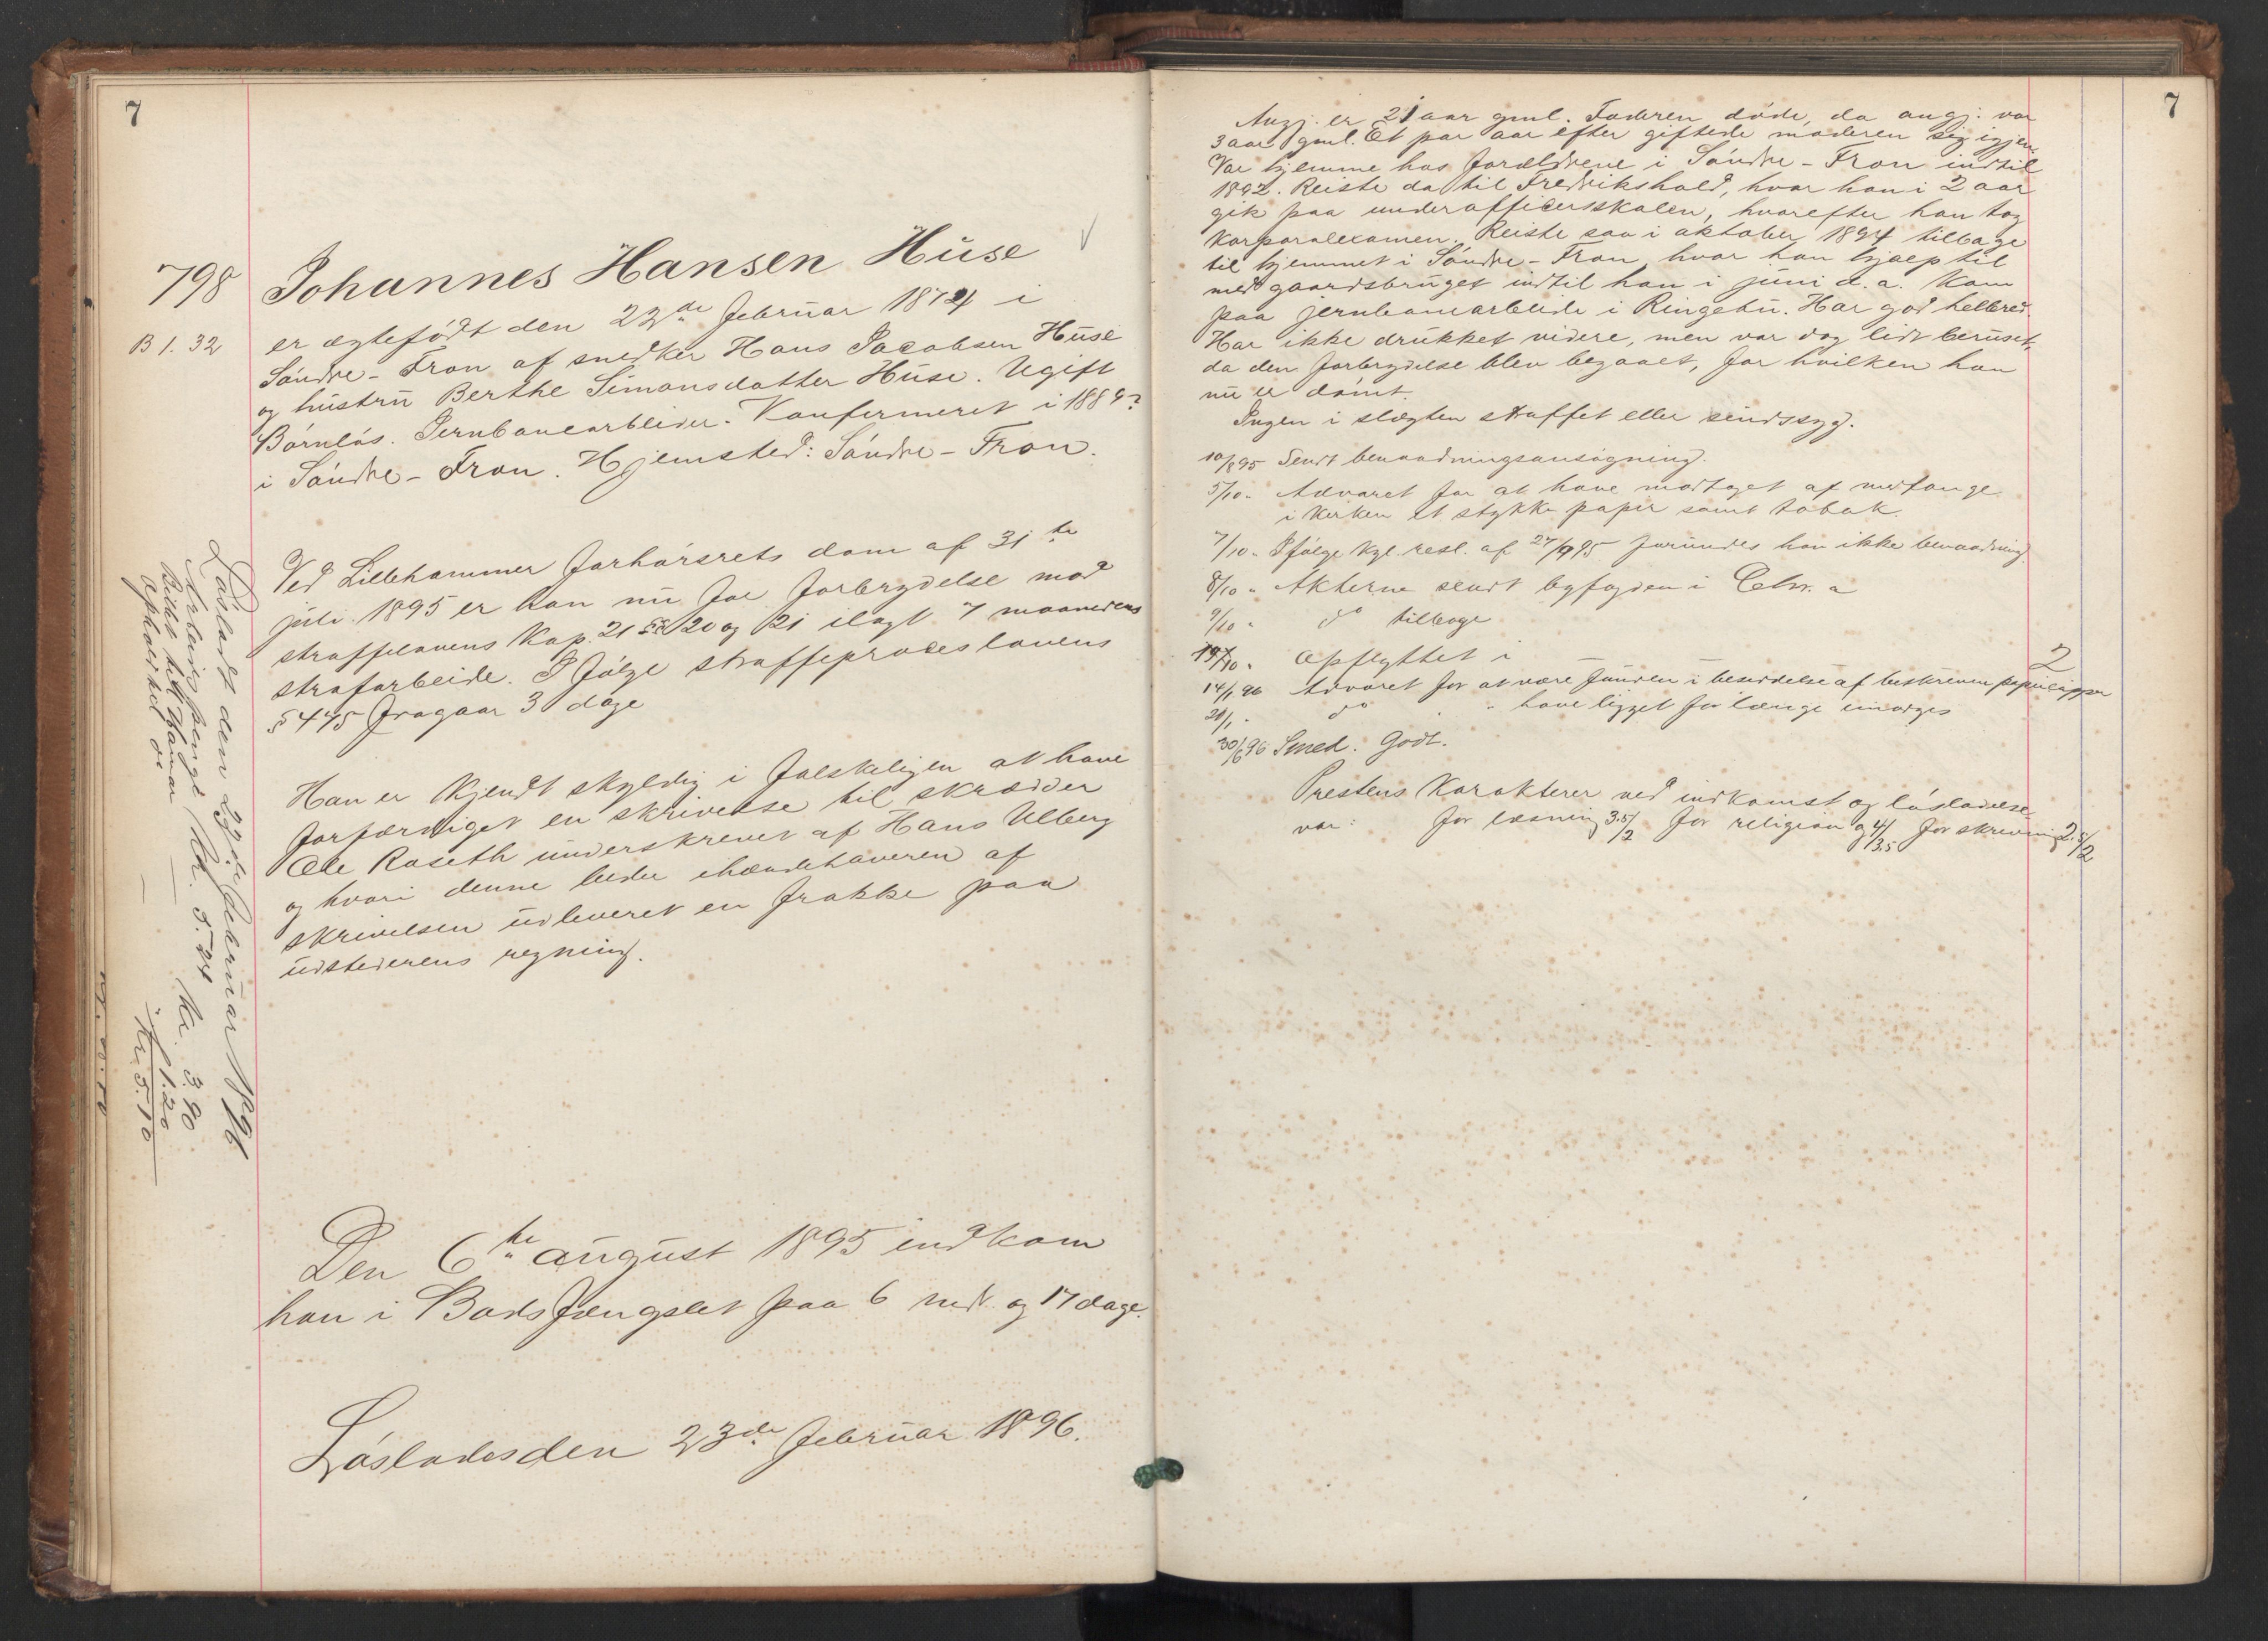 7
798
B 1. 32
Johannes Hansen Huse
er ægtefødt den 23de februar 1874 i
Søndre-Fron af snedker Hans Jacobsen Huse
og hustru Berthe Simonsdatter Huse. Ugift
Barnløs. Jernbanearbeider. Konfirmeret i 1889?
i Søndre-Fron. Hjemsted: Søndre-Fron.
Ved Lillehammer forhørsrets dom af 31te
juli 1895 er han nu for forbrydelse mod
straffelovens Kap. 21 §§ 20 og 21 ilagt 7 maaneders
strafarbeide. Ifølge straffeproceslovens
§ 475 fragaar 3 dage
Han er kjendt skyldig i falskeligen at have
forfærdiget en skrivelse til skrædder
Ole Roseth underskrevet af Hans Ulberg
og hvori denne beder ihændehaveren af
skrivelsen udleveret en frakke paa
udstederens regning.
Løsladt den 23de februar 1896
Arbeidspenge Kr. 3.90
Billet til Hamar Kr. 5.24 " 1.20
Opholdssed
Kr. 5.10
Den 6te august 1895 indkom
han i Bodsfængslet paa 6 md. og 17 dage.
Løslades den 23de februar 1896.
7
Angj. er 21 aar gml. Faderen døde, da angj. var
3 aar gml. Et par aar efter giftede moderen sig igjen.
Var hjemme hos forældrene i Søndre-Fron indtil
1892. Reiste da til Fredrikshald, hvor han i 2 aar
gik paa underofficersskolen, hvorefter han tog
korporalexamen. Reiste saa i oktober 1894 tilbage
til hjemmet i Søndre-Fron, hvor han hjalp til
med gaardsbruget indtil han i juni d. a. kom
paa jernbanearbeide i Ringebu. Har god helbred.
Har ikke drukket videre, men var dog lidt beruset,
da den forbrydelse blev begaaet, for hvilken han
nu er dømt.
Ingen i slægten straffet eller sindssyg.
10/8 95 Sendt benaadningsansøgning.
5/10 " Advaret for at have modtaget af medfange
i kirken et stykke papir samt tobak.
7/10 " Ifølge kgl. resl. af 27/9 95 forundes han ikke benaadning.
8/10 " Akterne sendt byfogden i
9/10 " do tilbage
/10 " Opflyttet i 2
14/1 96 Advaret for at være funden i besiddelse af beskreven papirlapper
/1 " do " have ligget for længe imorges
96 Smed. Godt.
Prestens Karakterer ved indkomst og løsladelse
var: for læsning 3.5/2 for religion og 4/3.5 for skrivning 2.5/2